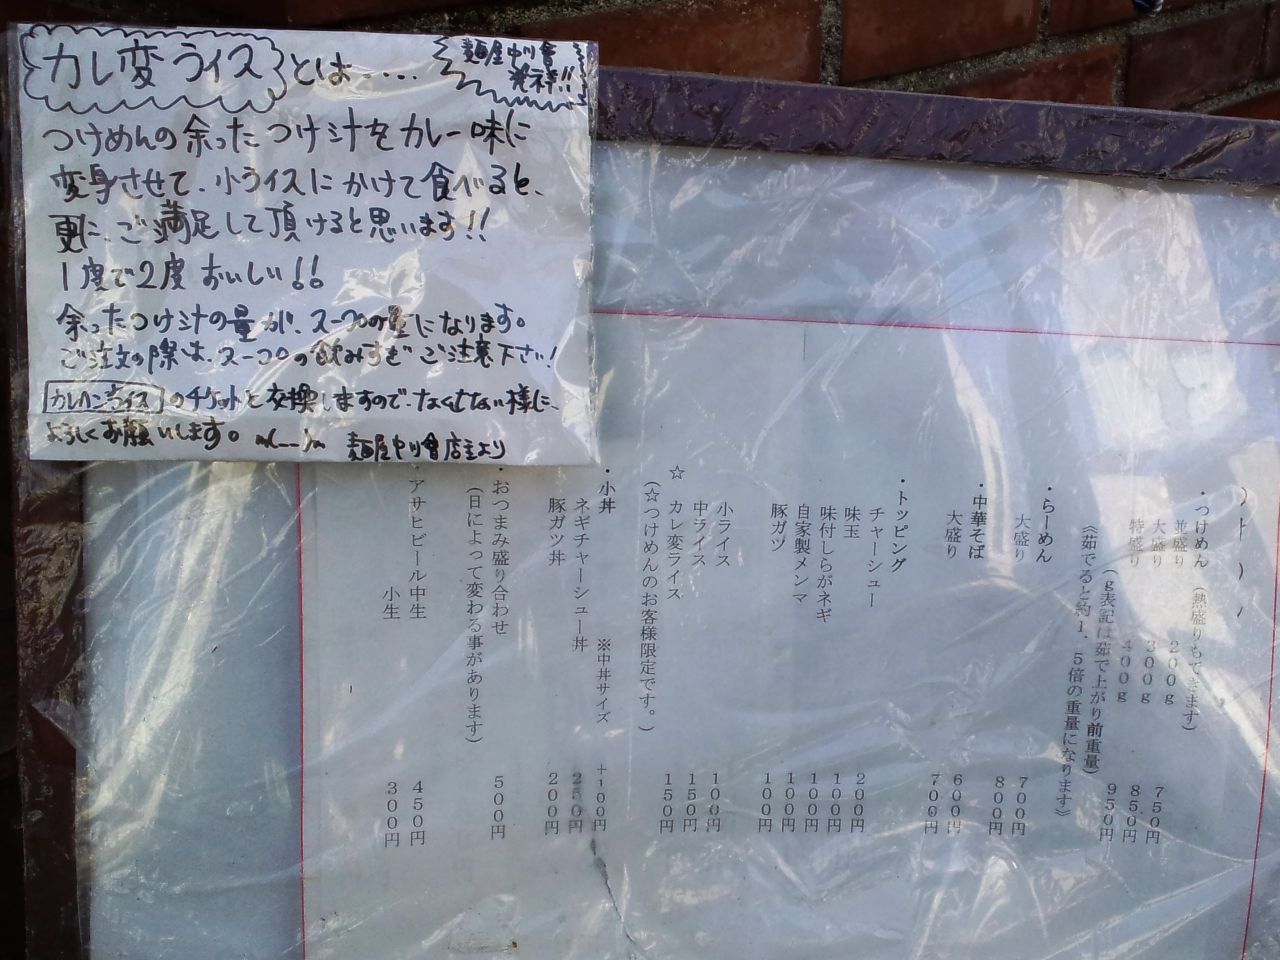 カレ変ライスとは....
麺屋中川會
発祥!!
つけめんの余ったつけ汁をカレー味に
変身させて、小ライスにかけて食べると、
更に、ご満足して頂けると思います!!
1度で2度おいしい!!
余ったつけ汁の量が、スープの量になります。
ご注文の際は、スープの飲みすぎご注意下さい!
カレヘンライスのチケットと交換しますので、なくさない様に、
よろしくお願いします。m(__)m 麺屋中川會店主より
・つけめん(熱盛りもできます)
並盛り 200g 750円
大盛り 300g 850円
特盛り 400g 950円
(g表記は茹で上がり前重量)
《茹でると約1.5倍の重量になります》
・らーめん 700円
大盛り 800円
・中華そば 600円
大盛り 700円
・トッピング
チャーシュー 200円
味玉 100円
味付しらがネギ 100円
自家製メンマ 100円
豚ガツ 100円
小ライス 100円
中ライス 150円
☆ カレ変ライス 150円
(☆つけめんのお客様限定です。)
・小丼 ※中丼サイズ +100円
ネギチャーシュー丼 250円
豚ガツ丼 200円
・おつまみ盛り合わせ 500円
(日によって変わる事があります)
・アサヒビール中生 450円
小生 300円